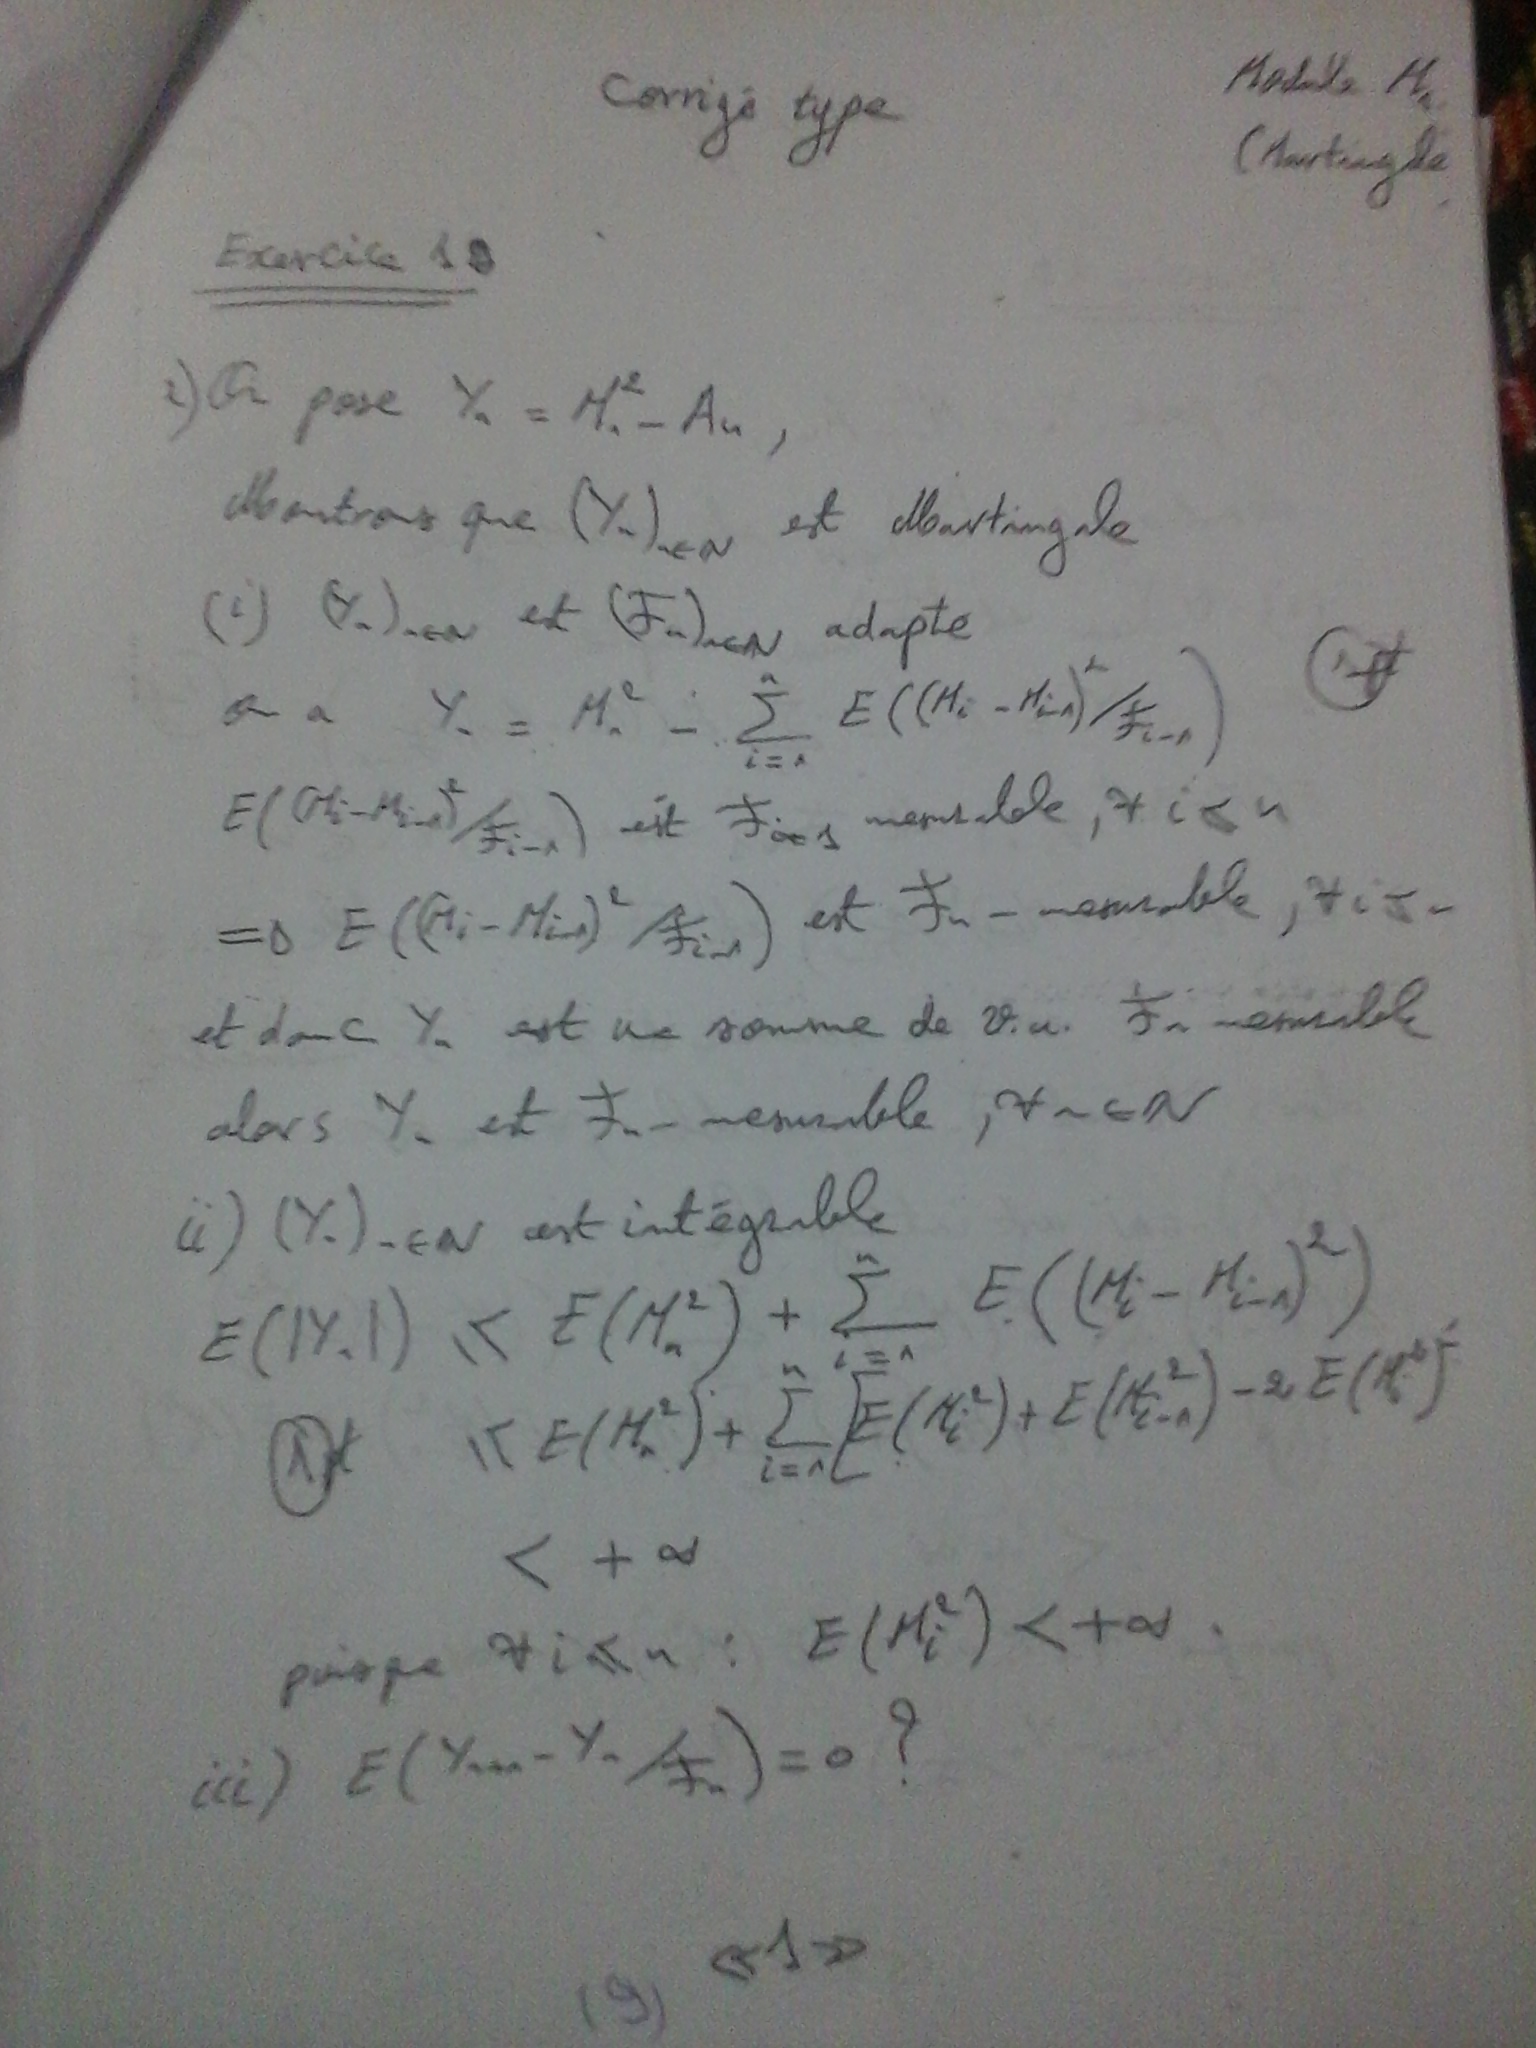 Corrigé type
Module M
(Martingale
Exercice 1
1) On pose Yₙ = Mₙ² - Aₙ,
Montrons que (Yₙ)ₙ∈ℕ est Martingale
(i) (Yₙ)ₙ∈ℕ est (Fₙ)ₙ∈ℕ adapté
on a Yₙ = Mₙ² - Σᵢ₌₁ⁿ E((Mᵢ - Mᵢ₋₁)²/Fᵢ₋₁)
E((Mᵢ - Mᵢ₋₁)²/Fᵢ₋₁) est Fᵢ₋₁ mesurable, ∀ i ≤ n
⇒ E((Mᵢ - Mᵢ₋₁)²/Fᵢ₋₁) est Fₙ - mesurable, ∀ i ≤ n
et donc Yₙ est une somme de v.a. Fₙ mesurable
alors Yₙ est Fₙ - mesurable, ∀ n ∈ ℕ
ii) (Yₙ)ₙ∈ℕ est intégrable
E(|Yₙ|) ≤ E(Mₙ²) + Σᵢ₌₁ⁿ E((Mᵢ - Mᵢ₋₁)²)
1pt ≤ E(Mₙ²) + Σᵢ₌₁ⁿ [E(Mᵢ²) + E(Mᵢ₋₁²) - 2E(
< +∞
puisque ∀ i ≤ n : E(Mᵢ²) < +∞.
iii) E(Yₙ₊₁ - Yₙ/Fₙ) = 0 ?
«1»
(9)